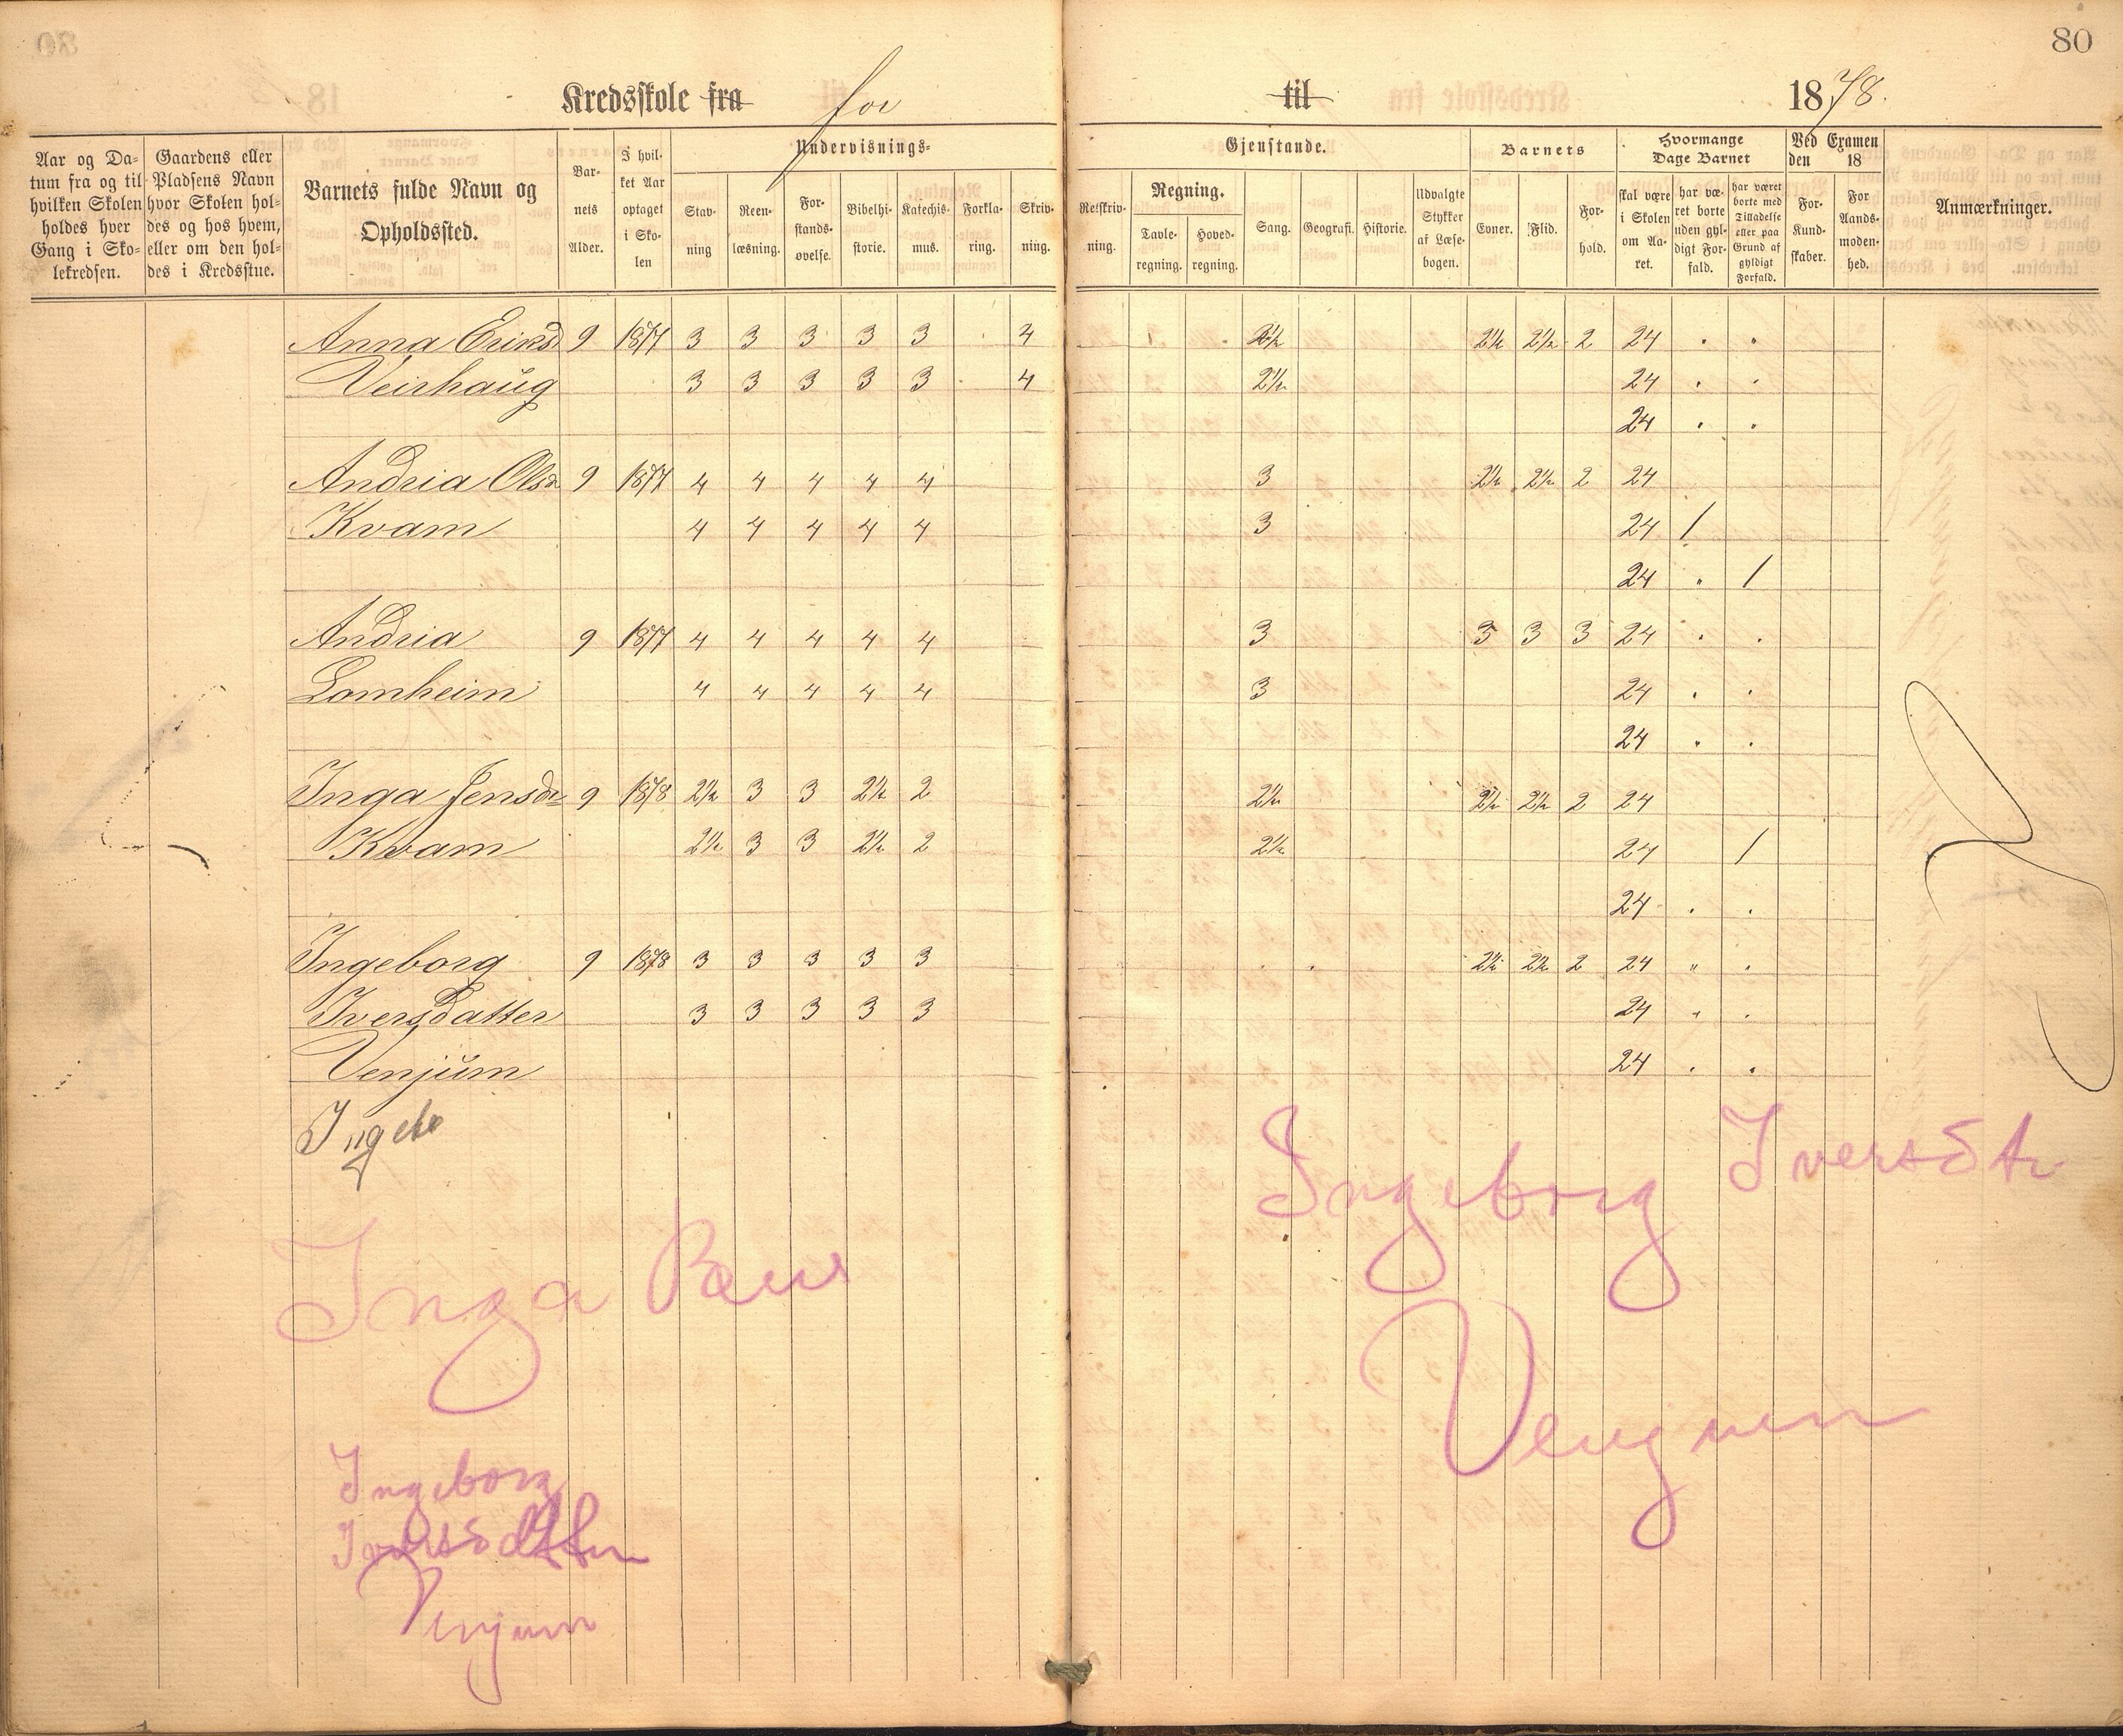 80
Kredsskole fra for til 1878.
Aar og Da-
tum fra og til
hvilken Skolen
holdes hver
Gang i Sko-
lekredsen.
Gaardens eller
Pladsens Navn
hvor Skolen hol-
des og hos hvem,
eller om den hol-
des i Kredsstue.
Barnets fulde Navn og
Opholdssted.
Bar-
nets
Alder.
I hvil-
ket Aar
optaget
i Sko-
len
Undervisnings-
Stav-
ning
Reen-
læsning.
For-
stands-
øvelse.
Bibelhi-
storie.
Katechis-
mus.
Forkla-
ring.
Skriv-
ning.
Gjenstande.
Retskriv-
ning.
Regning.
Tavle-
regning.
Hoved-
regning.
Sang.
Geografi.
Historie.
Udvalgte
Stykker
af Læse-
bogen.
Barnets
Evner.
Flid.
For-
hold.
Hvormange
Dage Barnet
skal være
i Skolen
om Aa-
ret.
har væ-
ret borte
uden gyl-
digt For-
fald.
har været
borte med
Tilladelse
eller paa
Grund af
gyldigt
Forfald.
Ved Examen
den 18
For-
Kund-
skaber.
For
Aands-
moden-
hed.
Anmærkninger.
Anna Eriksd 9 1877 3 3 3 3 3 4 2½ 2½ 2½ 2 24 " "
Veirhaug 3 3 3 3 3 4 2½ 24 " "
24 " "
Andria Olsd 9 1877 4 4 4 4 4 3 2½ 2½ 2 24
Kvam 4 4 4 4 4 3 24 /
24 " /
Andria 9 1877 4 4 4 4 4 3 3 3 3 24 " "
Lomheim 4 4 4 4 4 3 24 " "
24 " "
Inga Jensdr 9 1878 2½ 3 3 2½ 2 2½ 2½ 2½ 2 24
Kvam 2½ 3 3 2½ 2 2½ 24 /
24 " "
Ingeborg 9 1878 3 3 3 3 3 2½ 2½ 2 24 " "
Iversdatter 3 3 3 3 3 24 " "
Venjum 24 " "
Inge
Ingeborg Iversdtr
Inga
Venjum
Ingeborg
Venjum